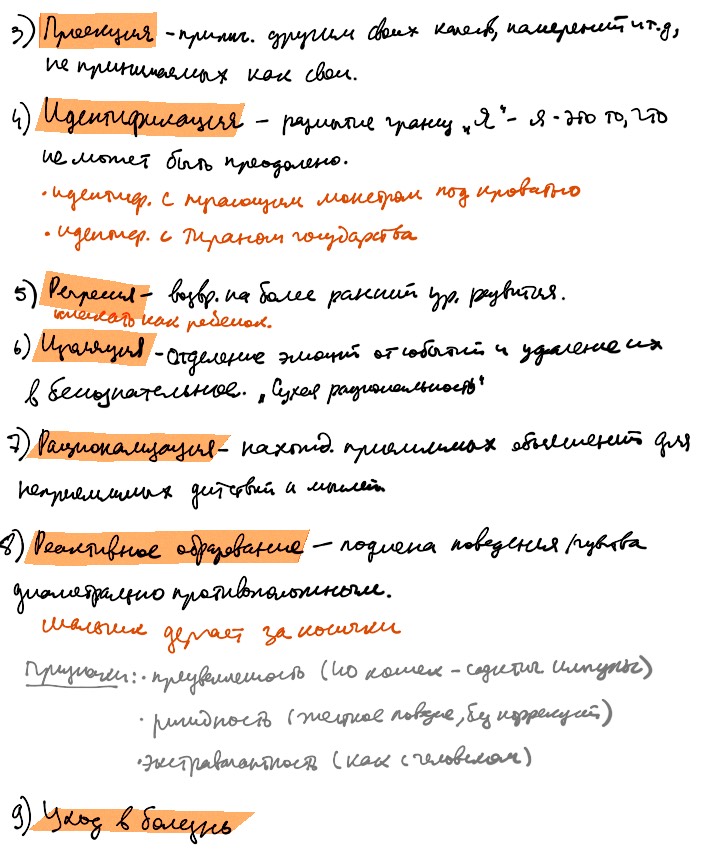 3) Проекция - припис. другим своих качеств, намерений и т.д,
не принимаемых как свои.
4) Идентификация - размытие границ „Я" - я - это то, что
не может быть преодолено.
• идентиф. с пугающим монстром под кроватью
• идентиф. с тираном государства
5) Регрессия - возвр. на более ранний ур. развития.
как ребенок.
6) Изоляция - отделение эмоций от событий и удаление их
в бессознательное. „Сухая рациональность"
7) Рационализация - нахожд. приемлимых объяснений для
неприемлимых действий и мыслей
8) Реактивное образование - подмена поведения/чувства
диаметрально противоположным.
мальчик дергает за косички
Признаки: • преувеличенность (40 кошек - садистич. импульс)
• ригидность (жесткое повед., без коррекций)
• экстравагантность (как с человеком)
9) Уход в болезнь